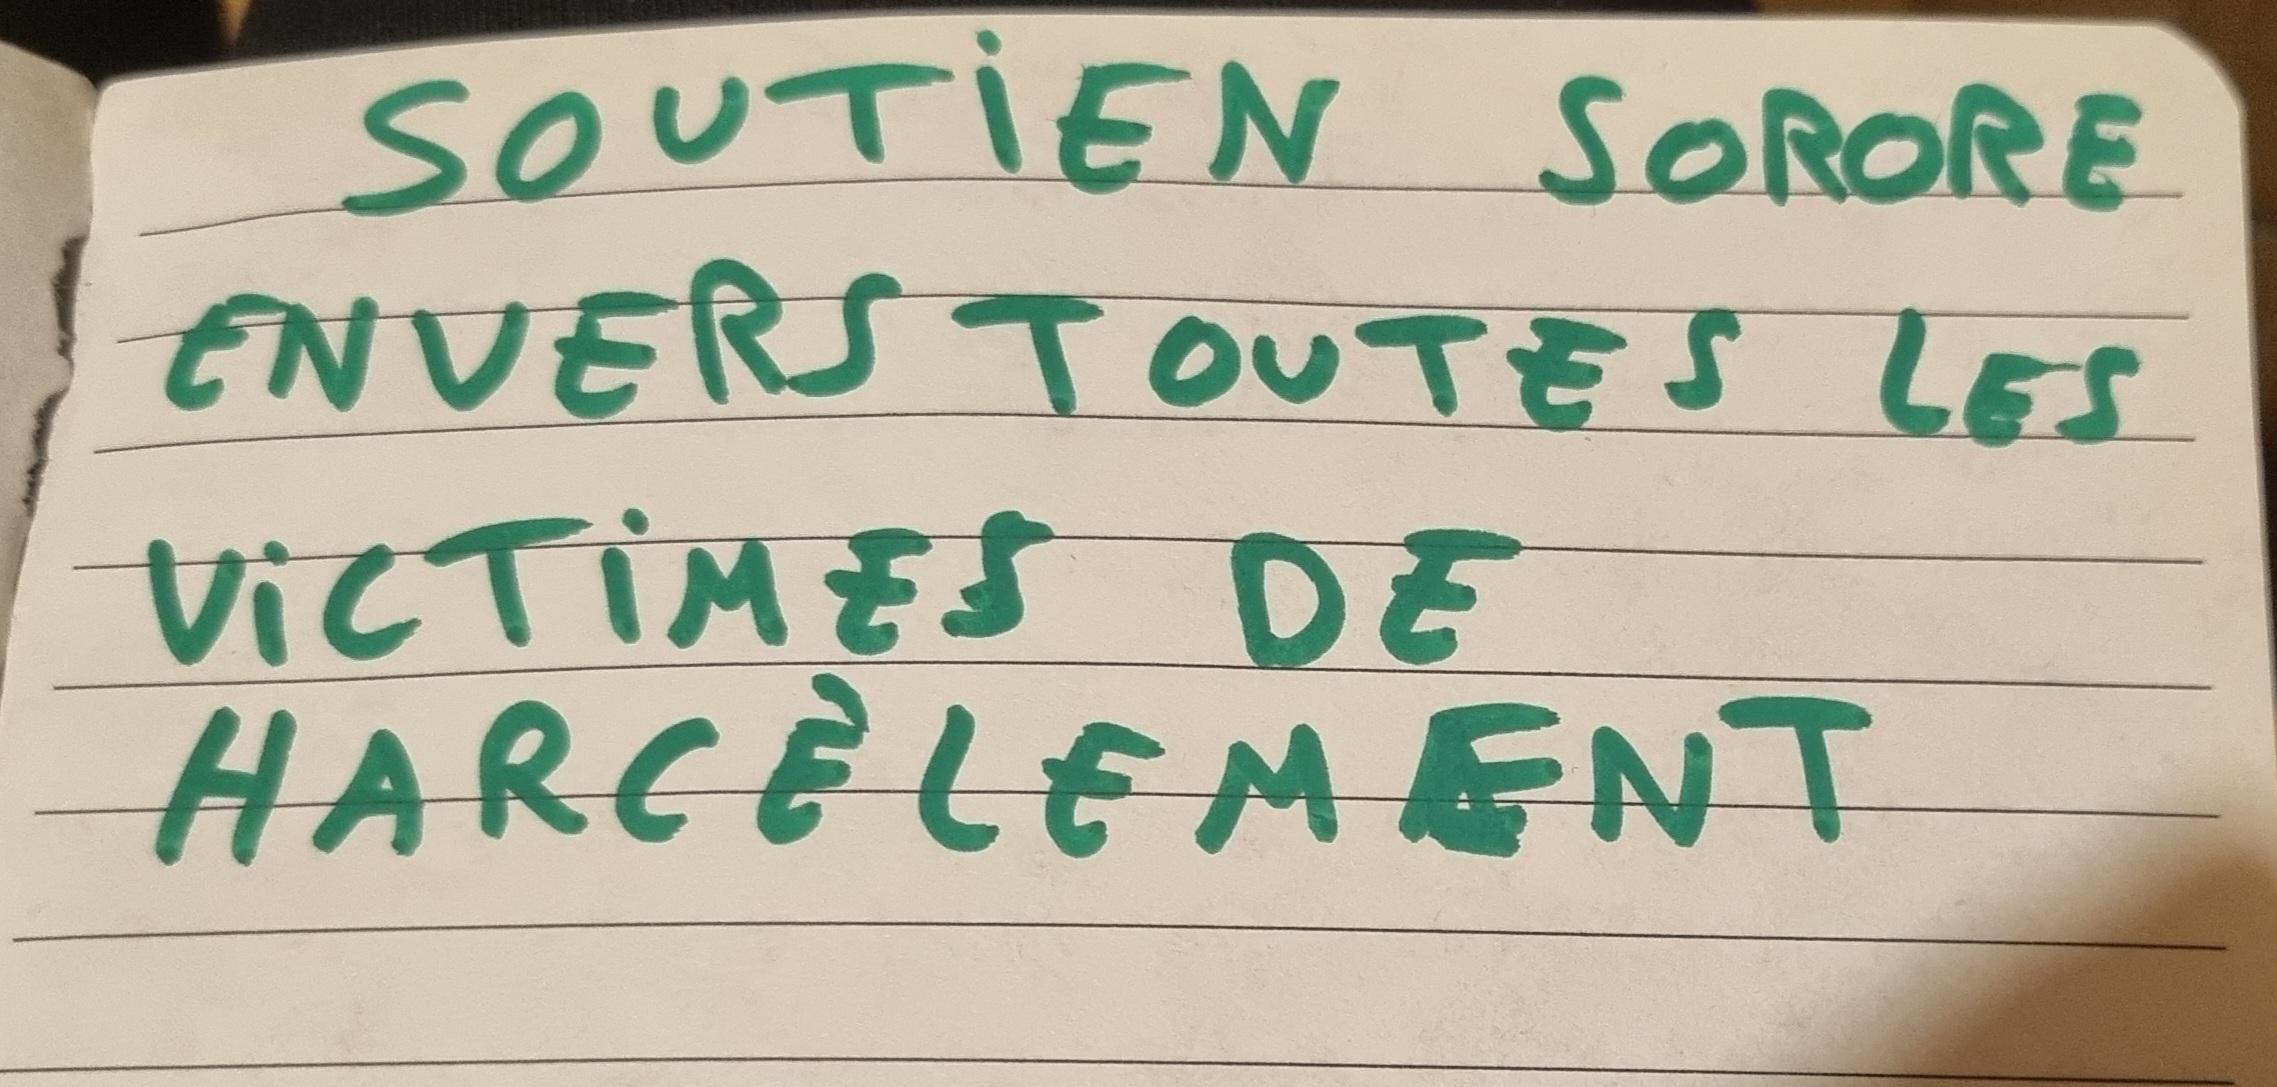 SOUTIEN SORORE
ENVERS TOUTES LES
VICTIMES DE
HARCÈLEMENT